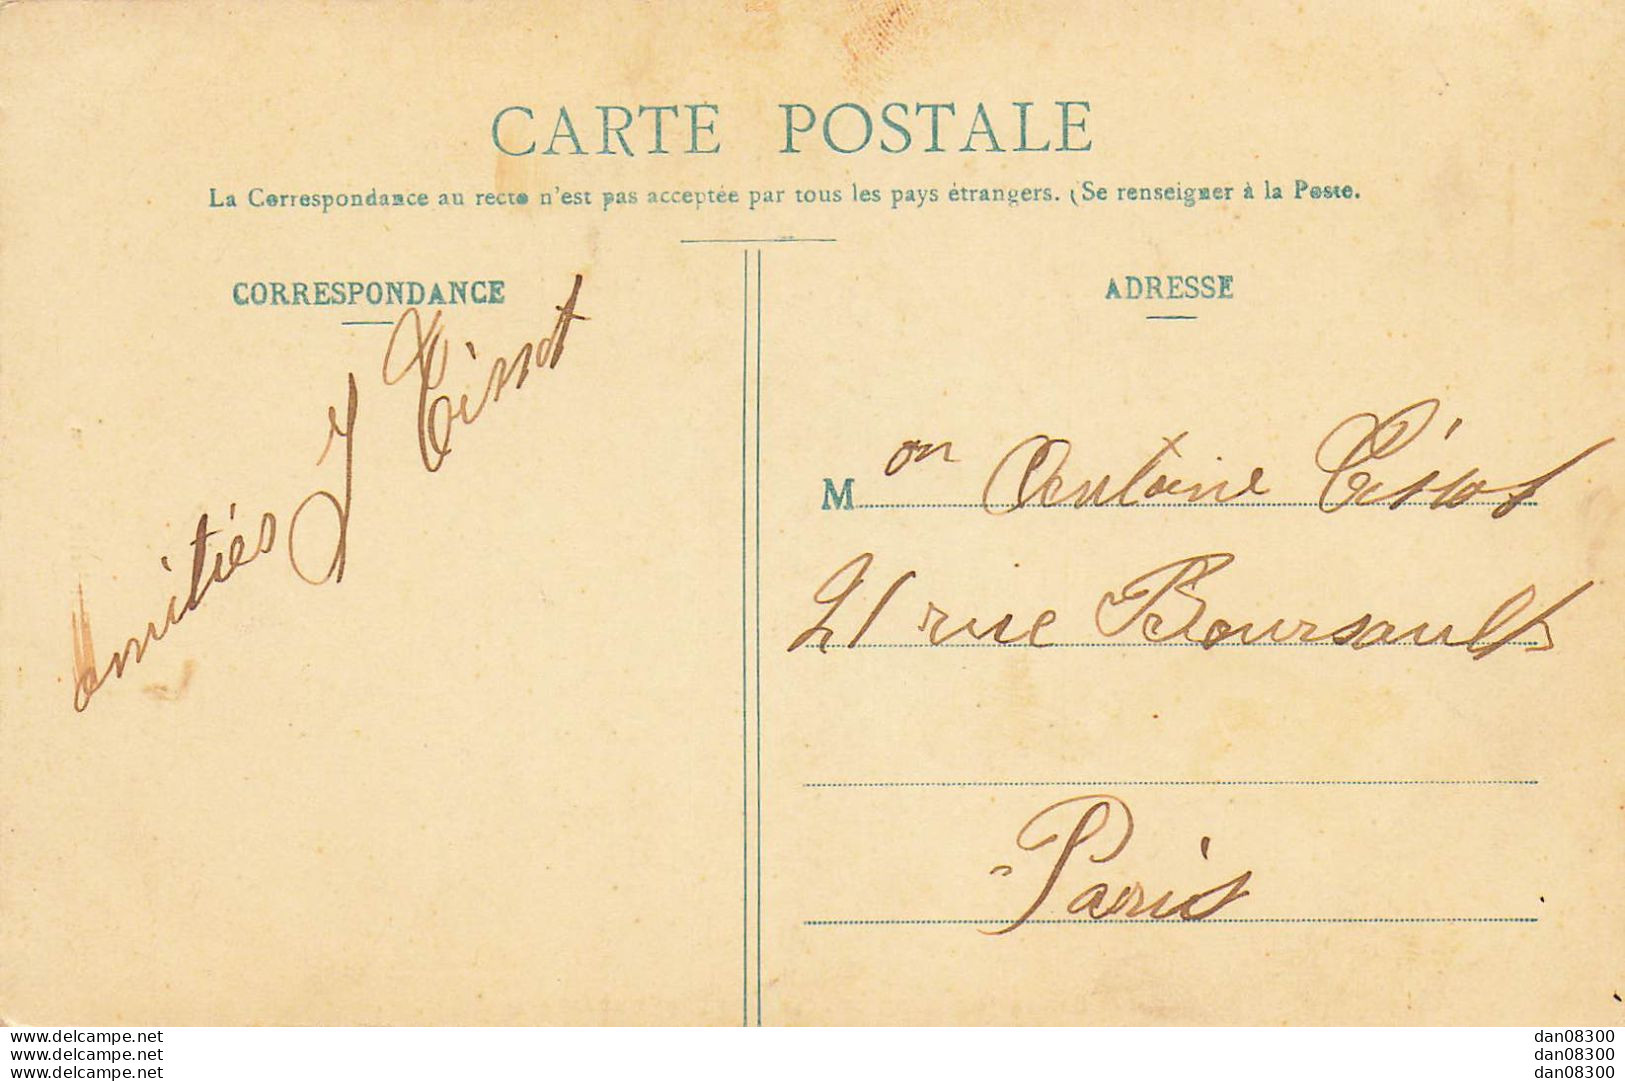 CARTE POSTALE
La Correspondance au recto n'est pas acceptée par tous les pays étrangers. (Se renseigner à la Poste.
CORRESPONDANCE
amitiés J Tissot
ADRESSE
Mon Antoine Tissot
21 rue Boursault
Paris
www.delcampe.net
www.delcampe.net
www.delcampe.net
dan08300
dan08300
dan08300